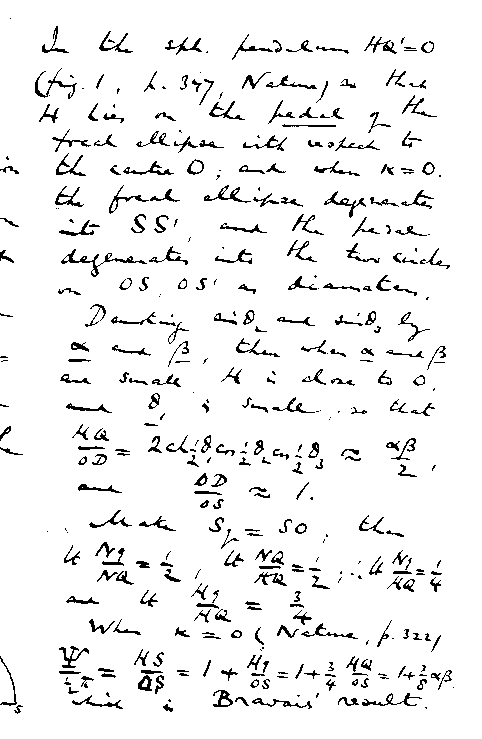 In the sph. pendulum HQ'=0
(fig. 1, p. 347, Nature) so that
H lies on the pedal of the
focal ellipse with respect to
the centre O; and when κ=0.
the focal ellipse degenerates
into SS', and the pedal
degenerates into the two circles
on OS, OS' as diameters.
Denoting sinθ₂ and sinθ₃ by
α and β, then when α and β
are small H is close to O,
and θ₁ is small, so that
HQ/OD = 2ch½θ₁cos½θ₂cos½θ₃ ≈ αβ/2,
and OD/OS ≈ 1.
Make Sq = SO; then
lt Nq/NQ = 1/2, lt NQ/HQ = 1/2, ∴ lt Nq/HQ = 1/4
and lt Hq/HQ = 3/4
When κ = 0 (Nature, p. 322)
Ψ/½π = HS/OS = 1 + Hq/OS = 1 + 3/4 HQ/OS = 1 + 3/8 αβ.
which is Bravais' result.